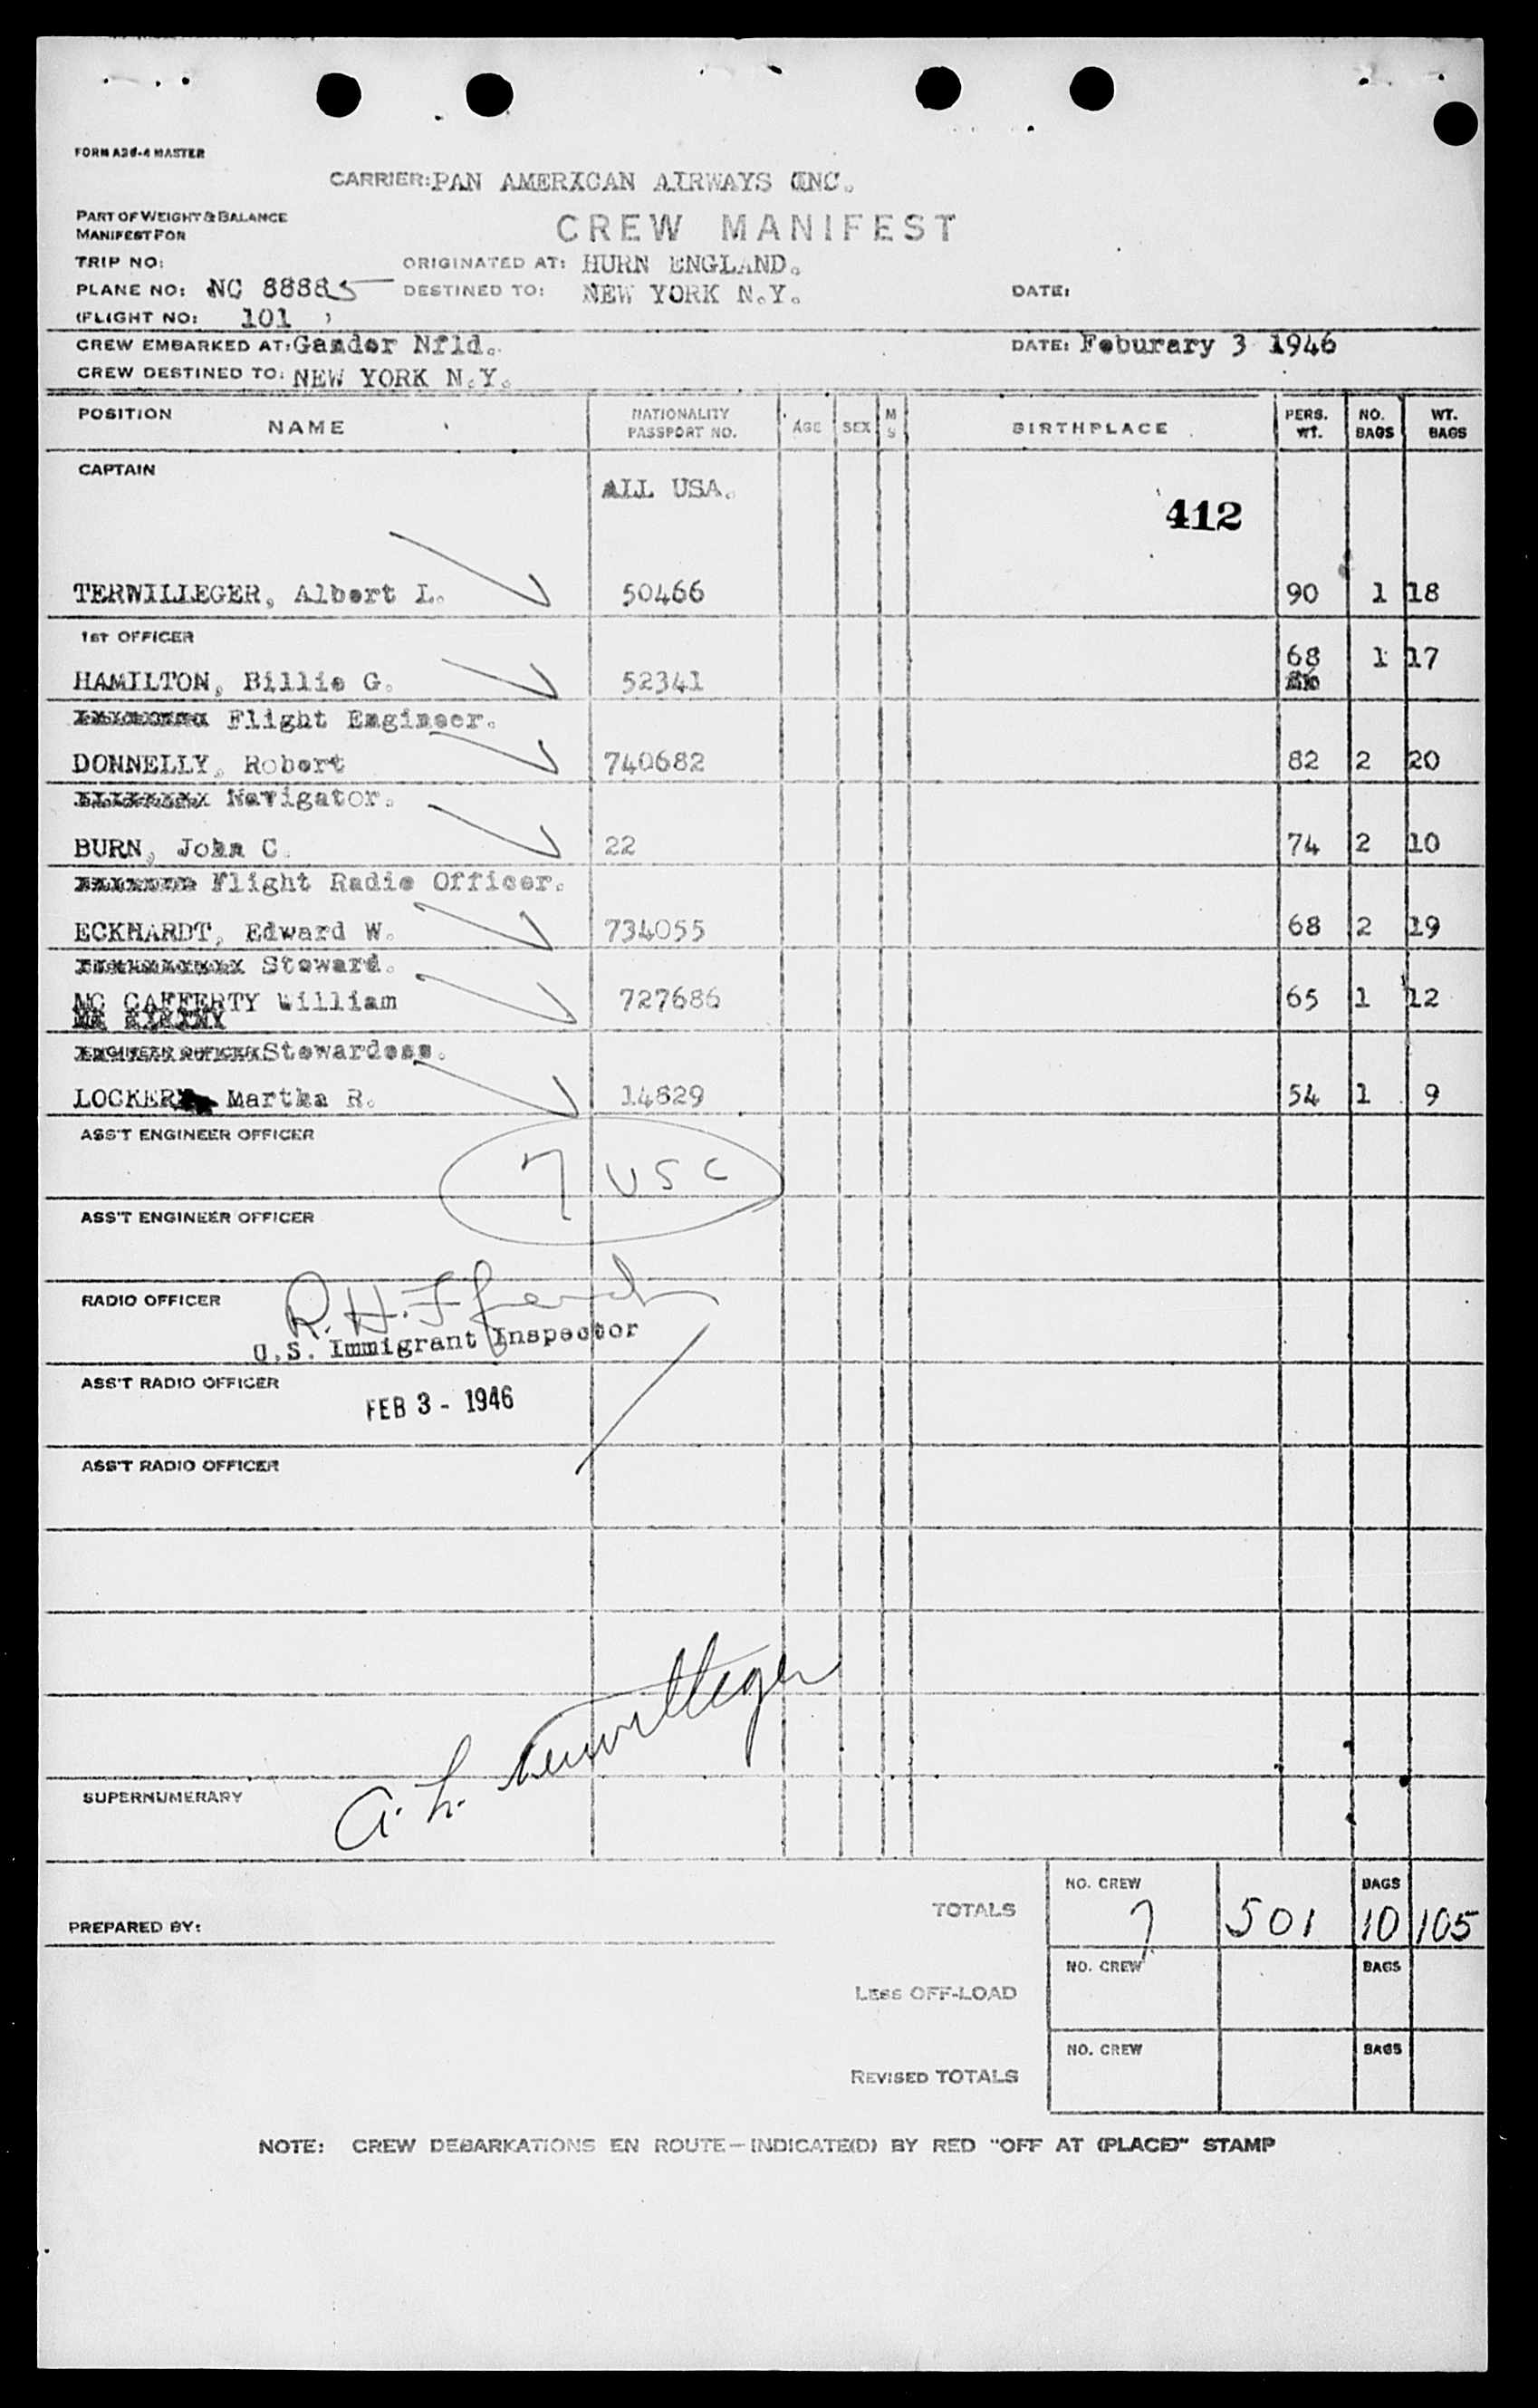 FORM A26-4 MASTER
CARRIER: PAN AMERICAN AIRWAYS INC.
PART OF WEIGHT & BALANCE
MANIFEST FOR
CREW MANIFEST
TRIP NO: ORIGINATED AT: HURN ENGLAND.
PLANE NO: NC 88885 DESTINED TO: NEW YORK N.Y. DATE:
(FLIGHT NO: 101 )
CREW EMBARKED AT: Gander Nfld. DATE: Feburary 3 1946
CREW DESTINED TO: NEW YORK N.Y.
POSITION NAME NATIONALITY PASSPORT NO. AGE SEX M S BIRTHPLACE PERS. WT. NO. BAGS WT. BAGS
CAPTAIN
ALL USA.
412
TERWILLEGER, Albert L. 50466 90 1 18
1ST OFFICER
HAMILTON, Billie G. 52341 68 1 17
Flight Engineer.
DONNELLY, Robert 740682 82 2 20
Navigator.
BURN, John C. 22 74 2 10
Flight Radio Officer.
ECKHARDT, Edward W. 734055 68 2 19
Steward.
MC CAFFERTY William 727686 65 1 12
Stewardess.
LOCKER Martha R. 14829 54 1 9
ASS'T ENGINEER OFFICER
7 USC
ASS'T ENGINEER OFFICER
RADIO OFFICER
R. H.
U.S. Immigrant Inspector
ASS'T RADIO OFFICER
FEB 3 - 1946
ASS'T RADIO OFFICER
A. L. Terwilleger
SUPERNUMERARY
PREPARED BY:
TOTALS NO. CREW 7 501 BAGS 10 105
LESS OFF-LOAD NO. CREW BAGS
REVISED TOTALS NO. CREW BAGS
NOTE: CREW DEBARKATIONS EN ROUTE—INDICATE(D) BY RED "OFF AT (PLACE)" STAMP